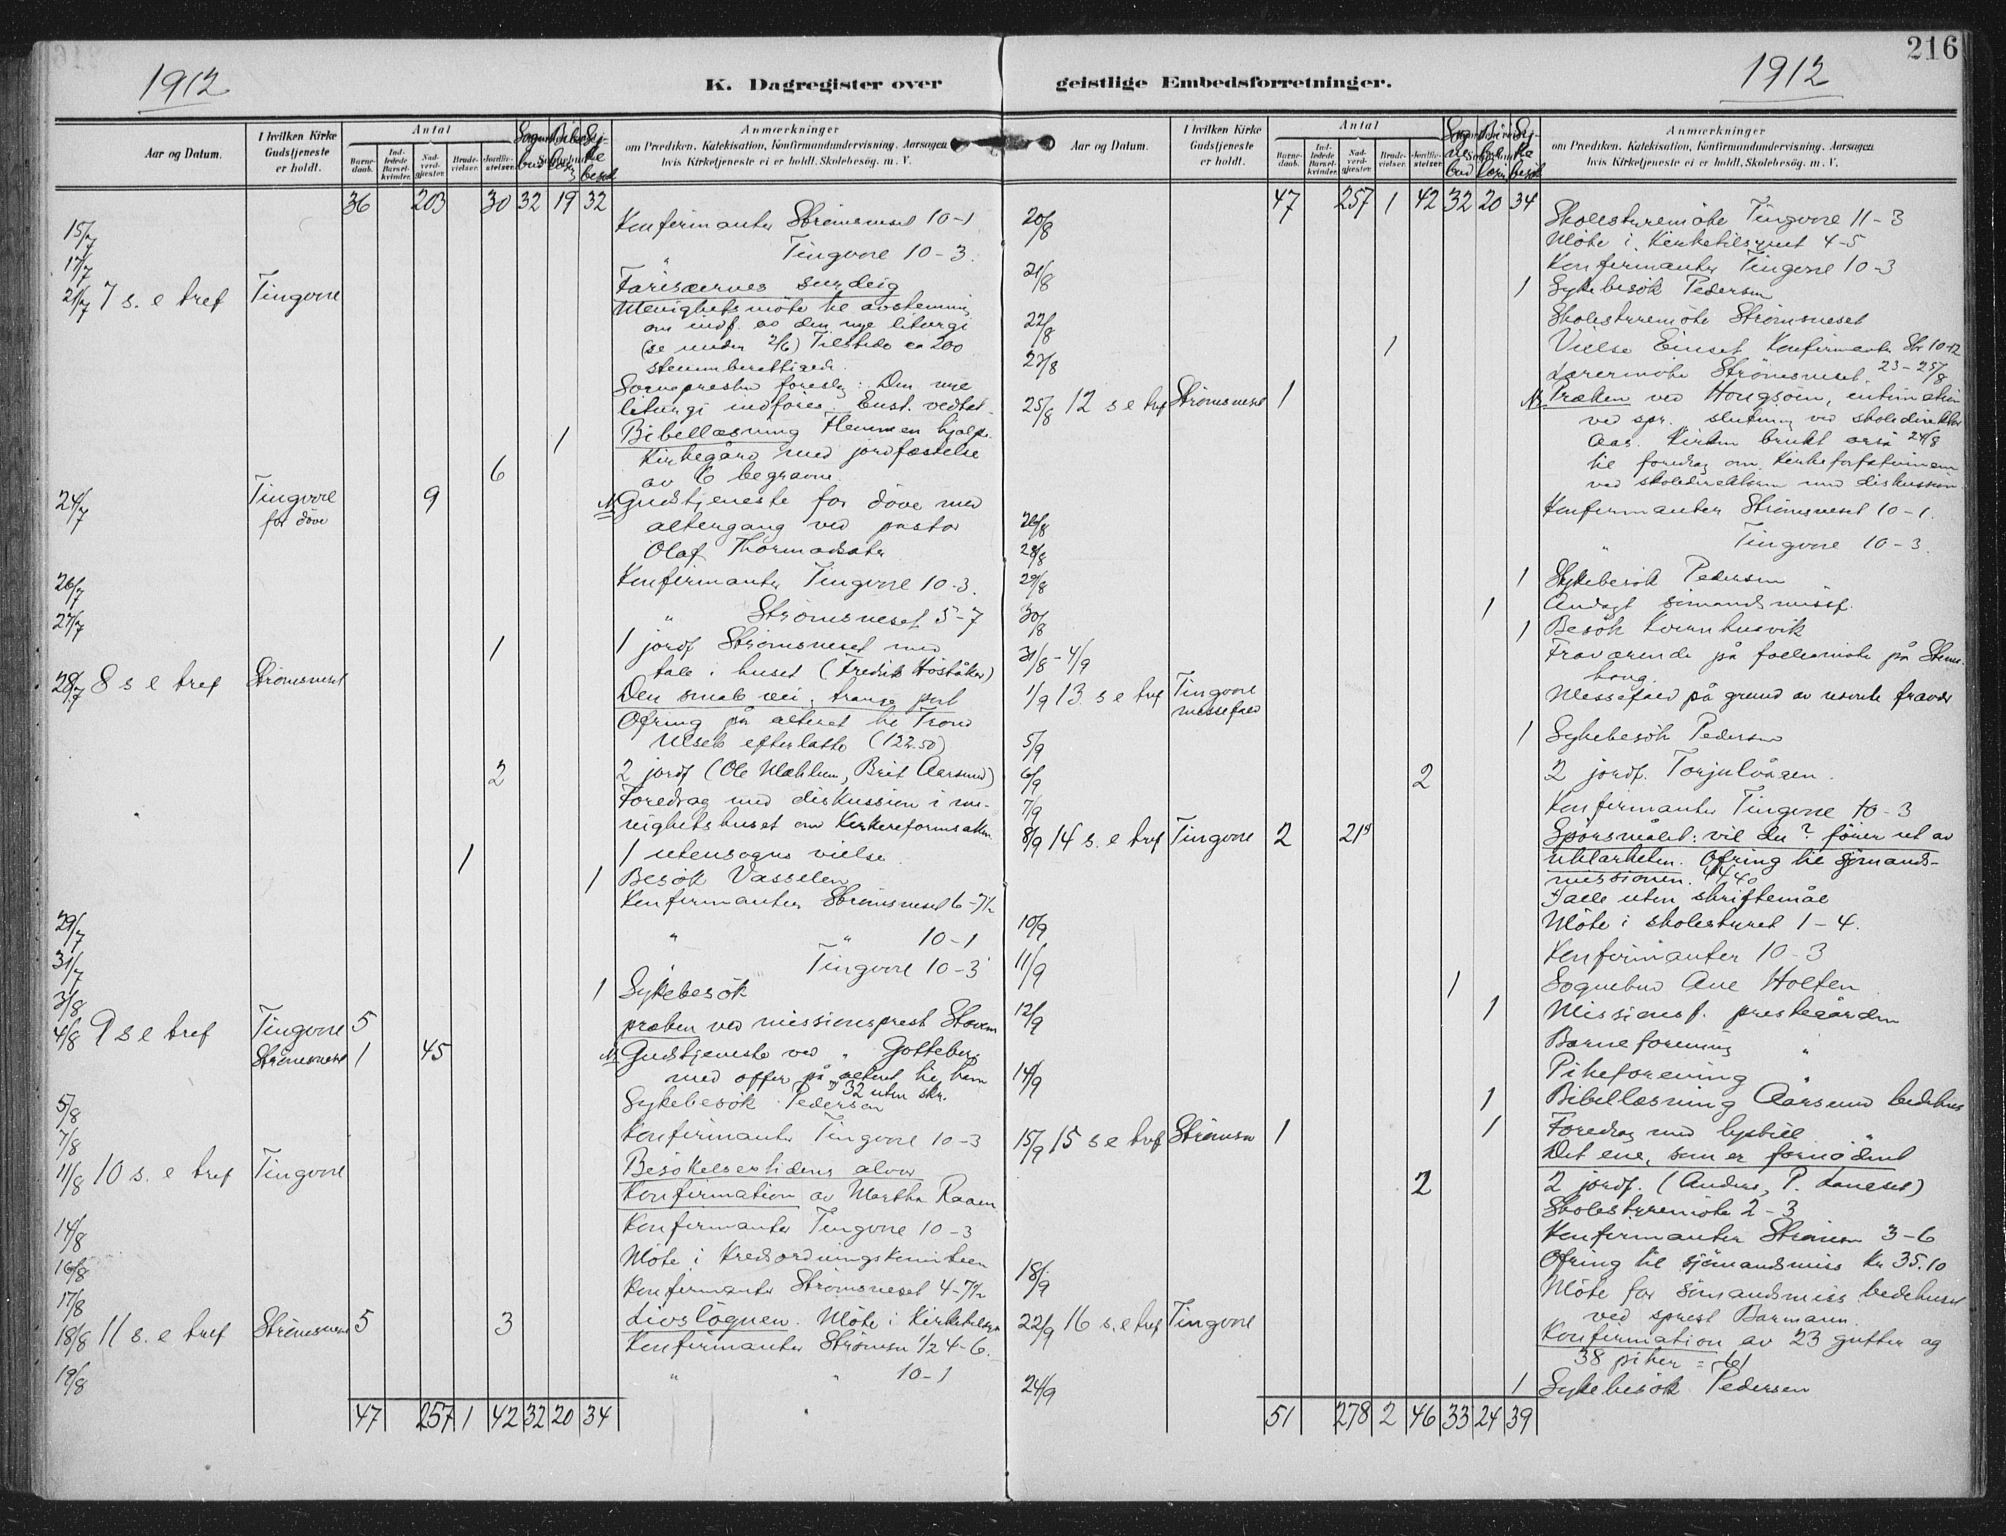 216
1912
K. Dagregister over
Aar og Datum.
I hvilken Kirke Gudstjeneste er holdt.
Antal
Barne-daab.
Ind-ledede Barsel-kvinder.
Nad-verd-gjester.
Brude-vielser.
Jordfæ-stelser.
Anmærkninger
om Prædiken. Katekisation, Konfirmandundervisning. Aarsagen
hvis Kirketjeneste ei er holdt. Skolebesög. m. V.
36 203 30 32 19 32
15/7 Konfirmanter Strømsneset 10-1
17/7 " Tingvoll 10-3.
21/7 7 s. e tref Tingvoll Farisæernes surdeig
Menighetsmöte til avstemning
om indf. av den nye liturgi
(se under 2/6) Tilstede ca 200
stemmeberettigede.
Sognepresten foreslog: Den nye
liturgi indföres. Enst. vedtat.
1 Bibellæsning Hemmen hjelpe-
kirkegård med jordfæstelse
6 av 6 begravne.
24/7 Tingvoll 9 N. Gudstjeneste for døve med
for døve altergang ved pastor
Olaf
26/7 Konfirmanter Tingvoll 10-3.
27/7 " Strømsneset 5-7
1 1 jordf Strømsneset med
tale i huset (Fredrik)
28/7 8 s e tref Strømsneset Den smale vei, trange port
Ofring på alteret til Trond
efterlatte (122.50)
2 2 jordf (Ole Mæhlum, Brit Aarsund)
Foredrag med diskussion i me-
nighetshuset om Kirkereformsaken
1 1 utensogns vielse.
1 Besök Vasselen
Konfirmanter Strømsneset 6-7½
29/7 " " 10-1
31/7 " Tingvoll 10-3
3/8 1 Sykebesök
4/8 9 s e tref Tingvoll 5 præken ved missionsprest
Strømsneset 1 45 N. Gudstjeneste ved " Gotteberg
med offer på alteret til ham
32 uten skr.
5/8 Sykebesök Pedersen
7/8 Konfirmanter Tingvoll 10-3
11/8 10 s. e tref Tingvoll Besökelsestidens alvor
Konfirmation av Martha Raaen
14/8 Konfirmanter Tingvoll 10-3
16/8 Möte i Kredsordningskomiteen
17/8 Konfirmanter Strømsneset 4-7½
18/8 11 s. e tref Strømsneset 5 3 Livslögnen. Möte i Kirketilsyn
Konfirmanter Strømsn ½4-6.
19/8 " " 10-1
47 257 1 42 32 20 34
geistlige Embedsforretninger.
1912
Aar og Datum.
I hvilken Kirke Gudstjeneste er holdt.
Antal
Barne-daab.
Ind-ledede Barsel-kvinder.
Nad-verd-gjester.
Brude-vielser.
Jordfæ-stelser.
Anmærkninger
om Prædiken. Katekisation, Konfirmandundervisning. Aarsagen
hvis Kirketjeneste ei er holdt. Skolebesög. m. V.
47 257 1 42 32 20 34
20/8 Skolestyremöte Tingvoll 11-3
Möte i Kirketilsynet 4-5
21/8 Konfirmanter Tingvoll 10-3
1 Sykebesök Pedersen
22/8 Skolestyremöte Strømsneset
1 Vielse Einset Konfirmanter Str 10-12
Lærermöte Strømsneset. 23-25/8
25/8 12 s e tref Strømsneset 1 N. Præken ved
ved spr. slutning ved skoledirektör
Aas. Kirken brukt også 24/8
til foredrag om Kirkeforfatningen
ved skoledirektøren med diskussion
26/8 Konfirmanter Strømsneset 10-1.
28/8 " Tingvoll 10-3.
29/8 1 Sykebesök Pedersen
30/8 1 Andagt sömandsmissf.
1 Besök Kvernhusvik
31/8-4/9 Fraværende på fællesmöte på Stens-
haug.
1/9 13 s e tref Tingvoll Messefald på grund av fravær
messefald
5/9 1 Sykebesök Pedersen
6/9 2 2 jordf. Torjulvågen.
7/9 Konfirmanter Tingvoll 10-3
8/9 14 s. e tref Tingvoll 2 21 Spörsmålet: vil du? förer ut av
uklarheten. Ofring til sjömands-
missionen. 44.40
Falle uten skriftemål
10/9 Möte i skolestyret 1-4.
11/9 Konfirmanter 10-3
1 Sognebud Ane Holten
12/9 1 Missionsf. prestegården
Barneforening "
14/9 Pikeforening "
1 Bibellæsning Aarsund bedehus
1 Foredrag med lysbill. "
15/9 15 s e tref Strømsn 1 Det ene, som er fornödent
2 2 jordf. (Anders, P. Laneset)
Skolestyremöte 2-3
Konfirmanter Strømsn 3-6
Ofring til sjömandsmiss kr 35.10
18/9 Möte for sömandsmiss bedehuset
ved sprest Barmann.
22/9 16 s. e tref Tingvoll Konfirmation av 23 gutter og
38 piker = 61
24/9 1 Sykebesök Pedersen
51 278 2 46 33 24 39